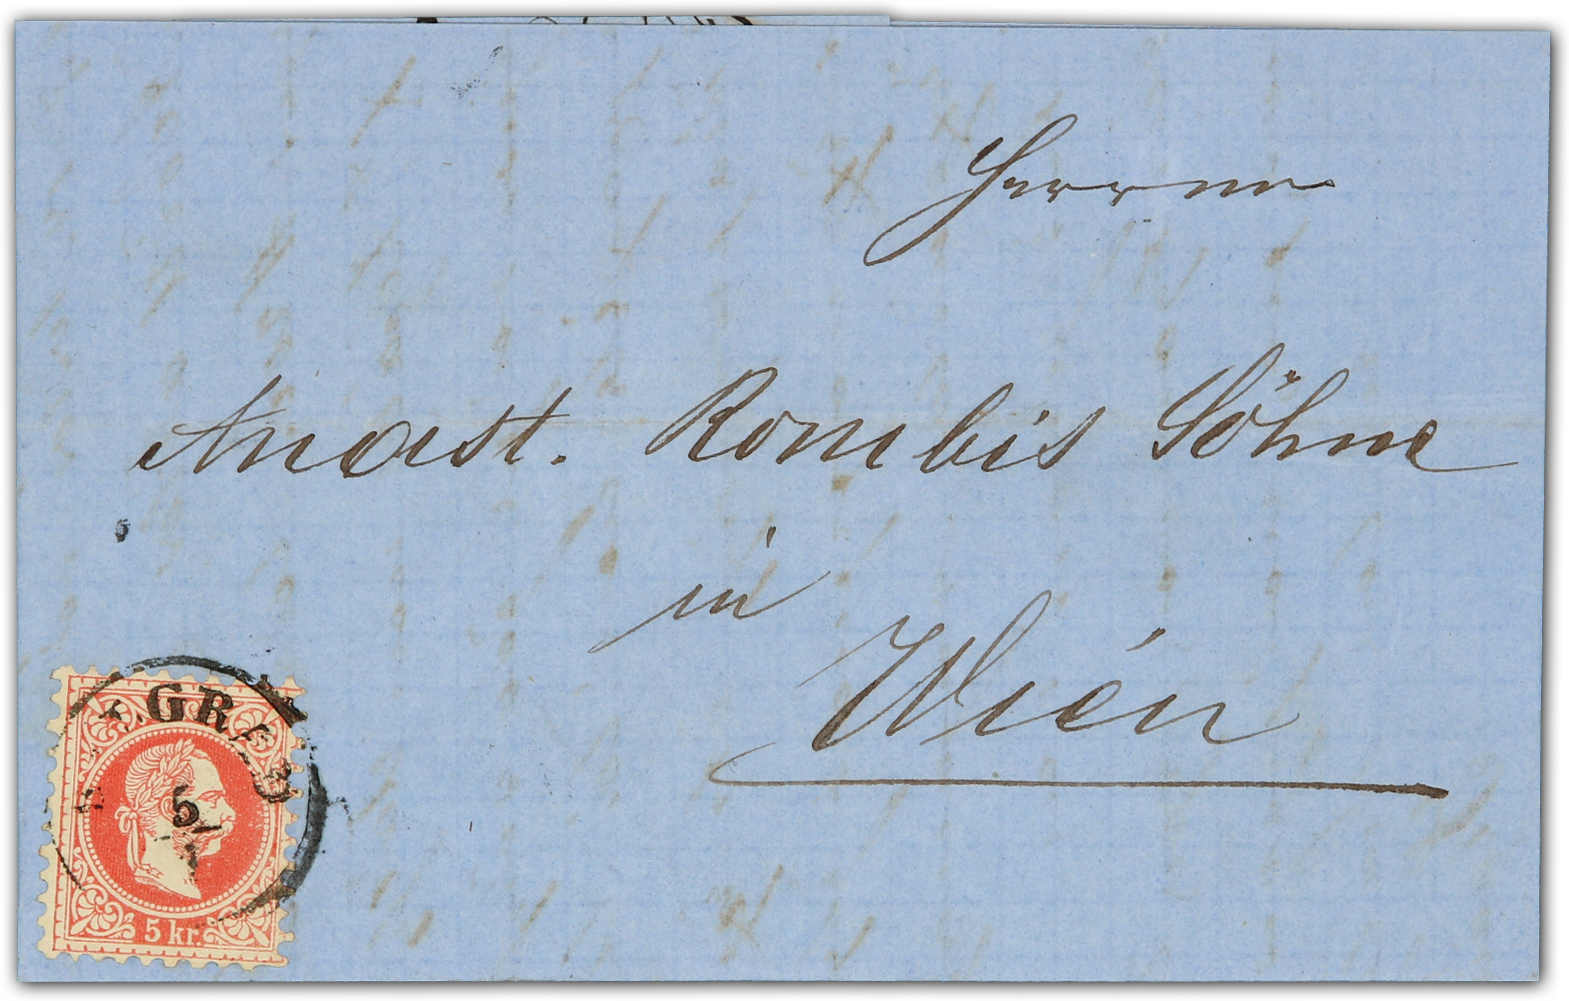 Herrn
Anast. Rombis Söhne
in
Wien
GR
5
5 kr.